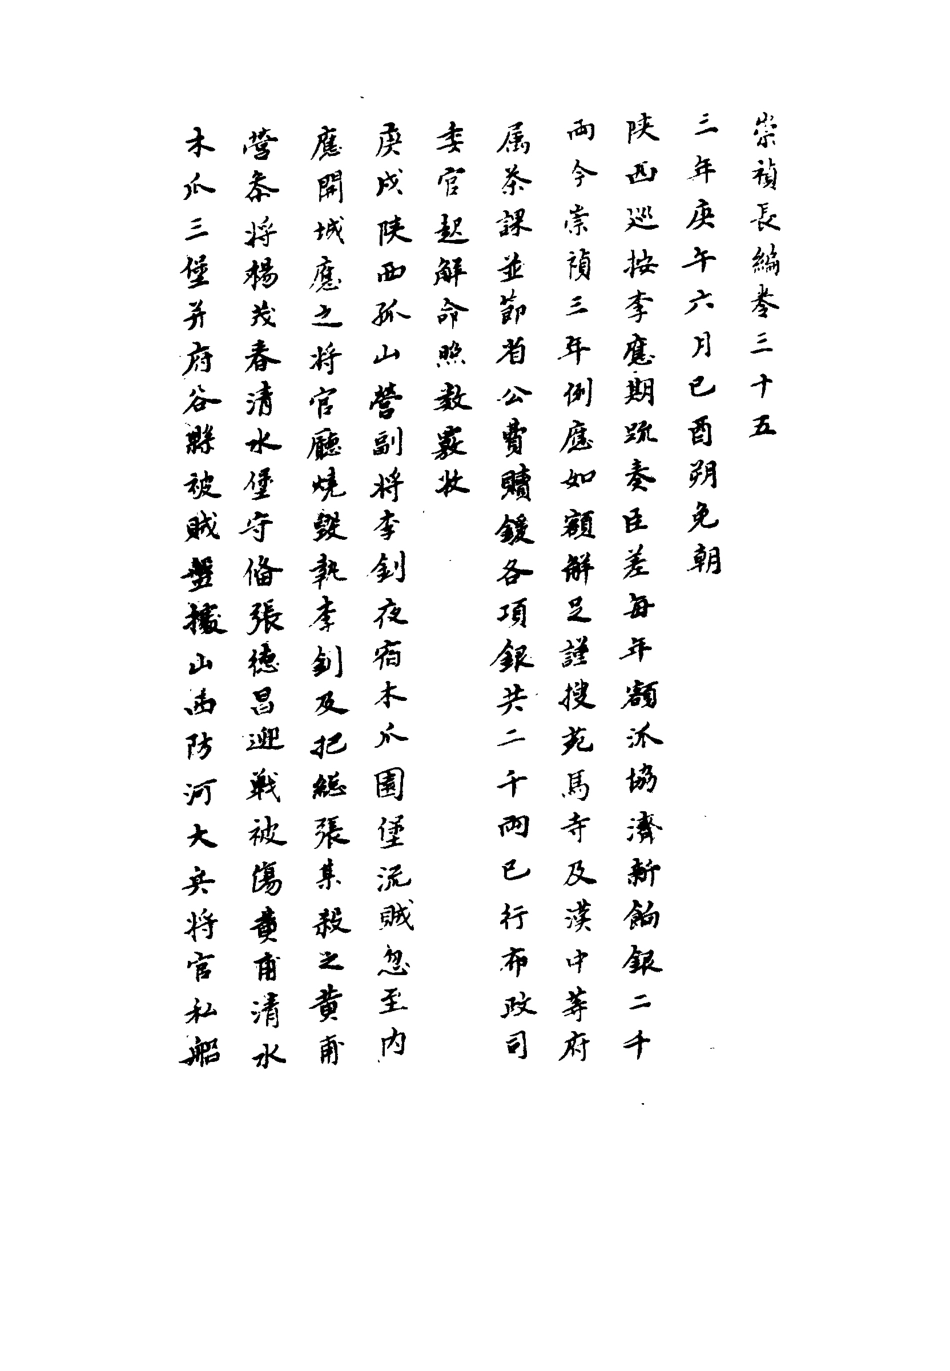 崇禎長編卷三十五
三年庚午六月己酉朔免朝
陝西巡按李應期疏奏臣差每年額派協濟新餉銀二千
兩今崇禎三年例應如額解足謹搜苑馬寺及漢中等府
屬茶課並節省公費贖鍰各項銀共二千兩已行布政司
委官起解命照數覈收
庚戌陝西孤山營副將李釗夜宿木爪園堡流賊忽至内
應開城應之將官廳燒毀執李釗及把總張某殺之黃甫
營叅將楊茂春清水堡守俻張德昌迎戰被傷黃甫清水
木爪三堡并府谷縣被賊盤據山西防河大兵將官私船